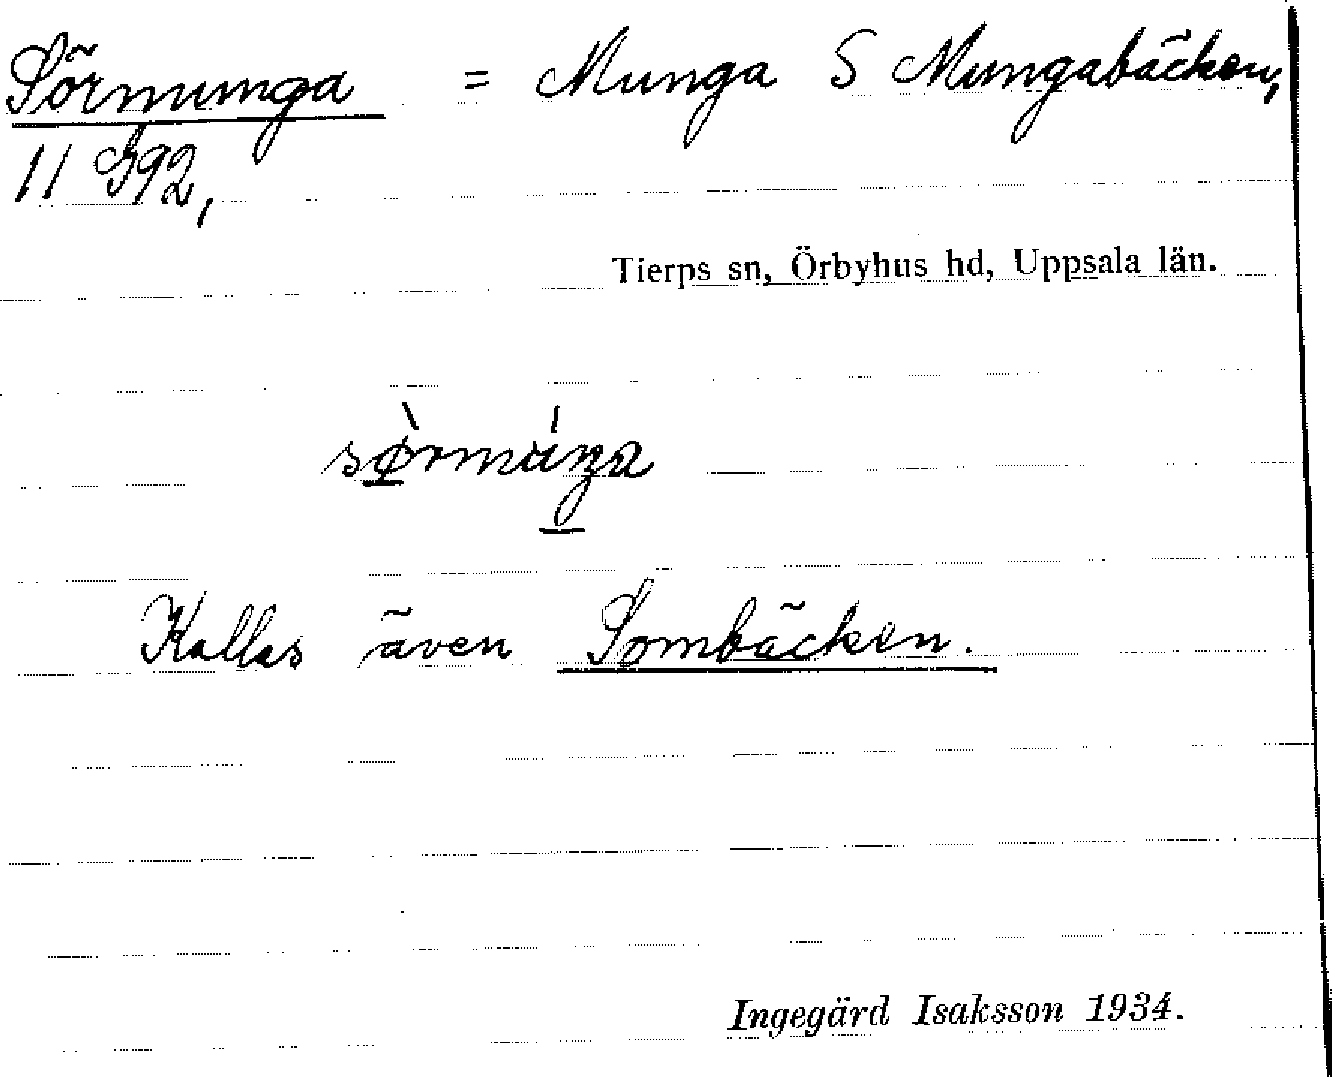 Sörmunga = Munga S Mungabäcken,
11 I92,
Tierps sn, Örbyhus hd, Uppsala län.
Kallas även Sombäcken.
Ingegärd Isaksson 1934.